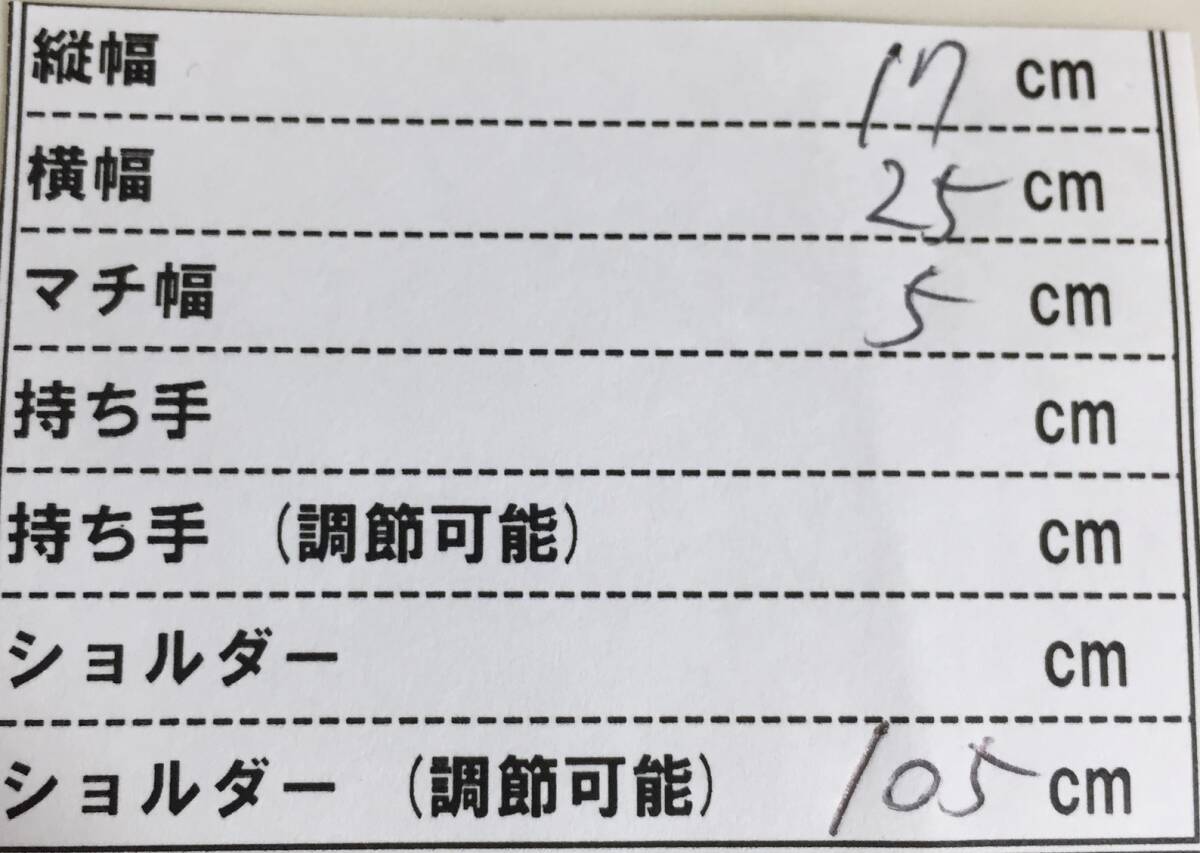 縦幅 17 cm
横幅 25 cm
マチ幅 5 cm
持ち手 cm
持ち手 (調節可能) cm
ショルダー cm
ショルダー (調節可能) 105 cm